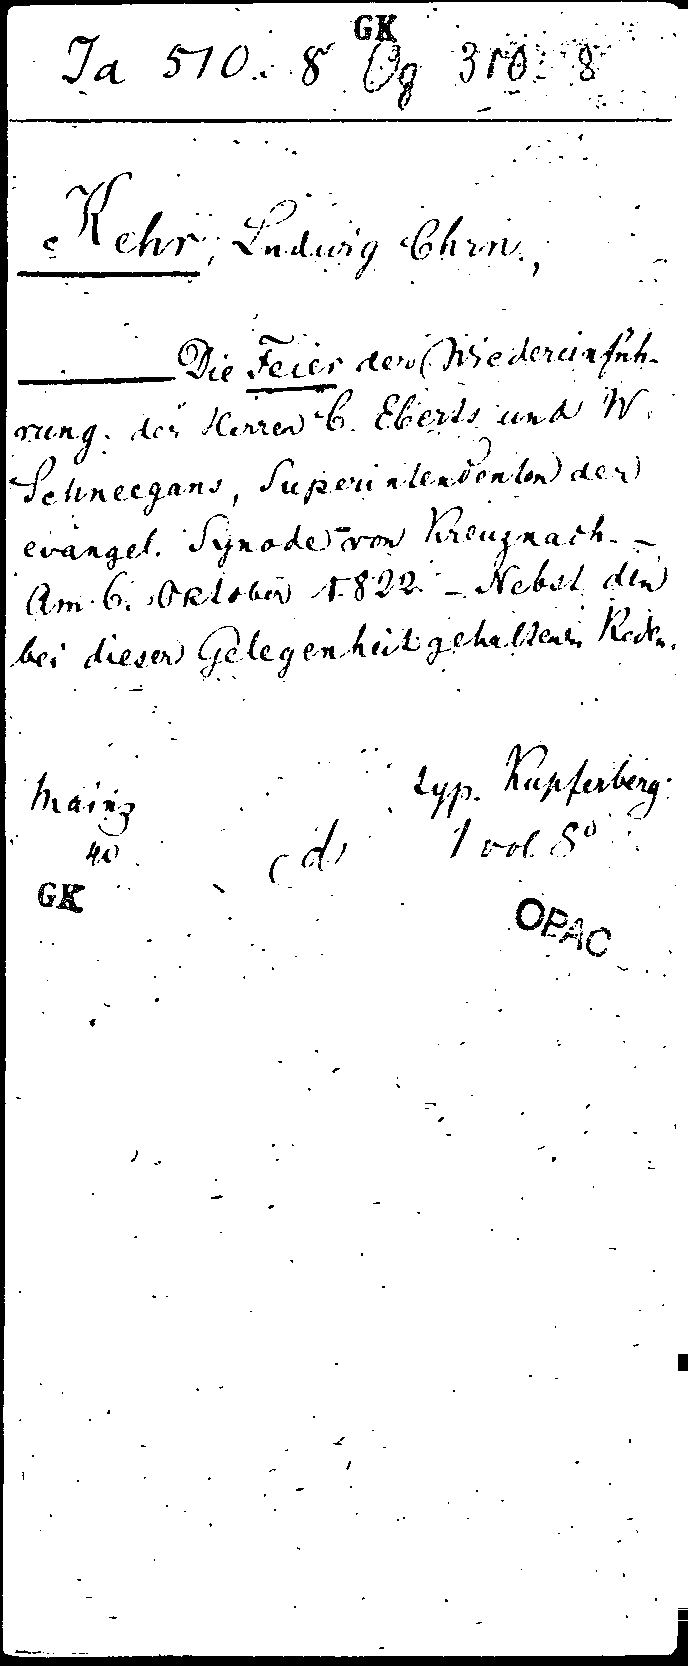 GK
Ja 510. 8 Og 310. 8
Kehr, Ludwig Chrn.,
Die Feier der Wiedereinfüh-
rung der Herren C. Eberts und W.
Schneegans, Superintendenten der
evangel. Synode von Kreuznach. –
Am 6. Oktober 1822. – Nebst den
bei dieser Gelegenheit gehaltenen Reden.
Mainz typ. Kupferberg.
40 d 1 vol 8°
GK OPAC